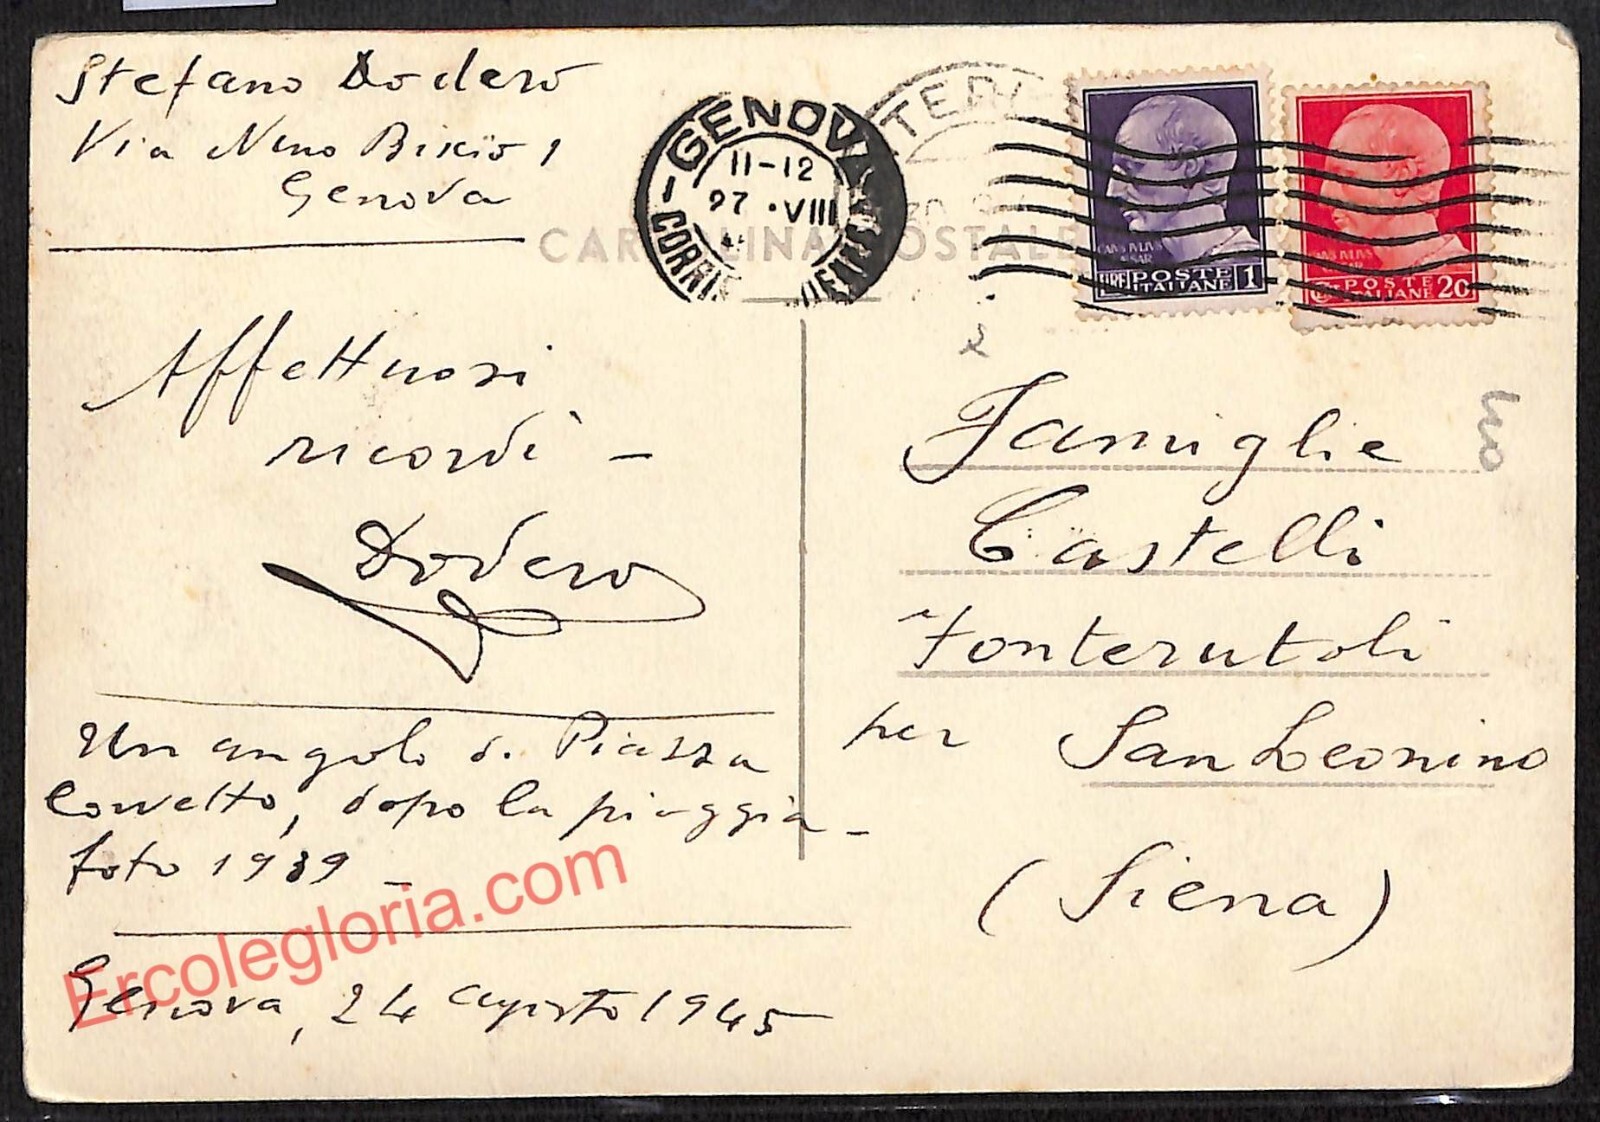 Stefano Dodero
Via Nino Bixio 1
Genova
CARTOLINA POSTALE
GENOVA
11-12
27 · VIII
CORRIS
TERI
CAIVS IVLIVS
CAESAR
LIRE POSTE ITALIANE 1
POSTE ITALIANE 20
Affettuosi
ricordi –
Dodero
Un angolo di Piazza
Corvetto, dopo la pioggia –
foto 1939 –
Genova, 24 agosto 1945
Famiglie
Castelli
Fonterutoli
per San Leonino
(Siena)
Ercolegloria.com